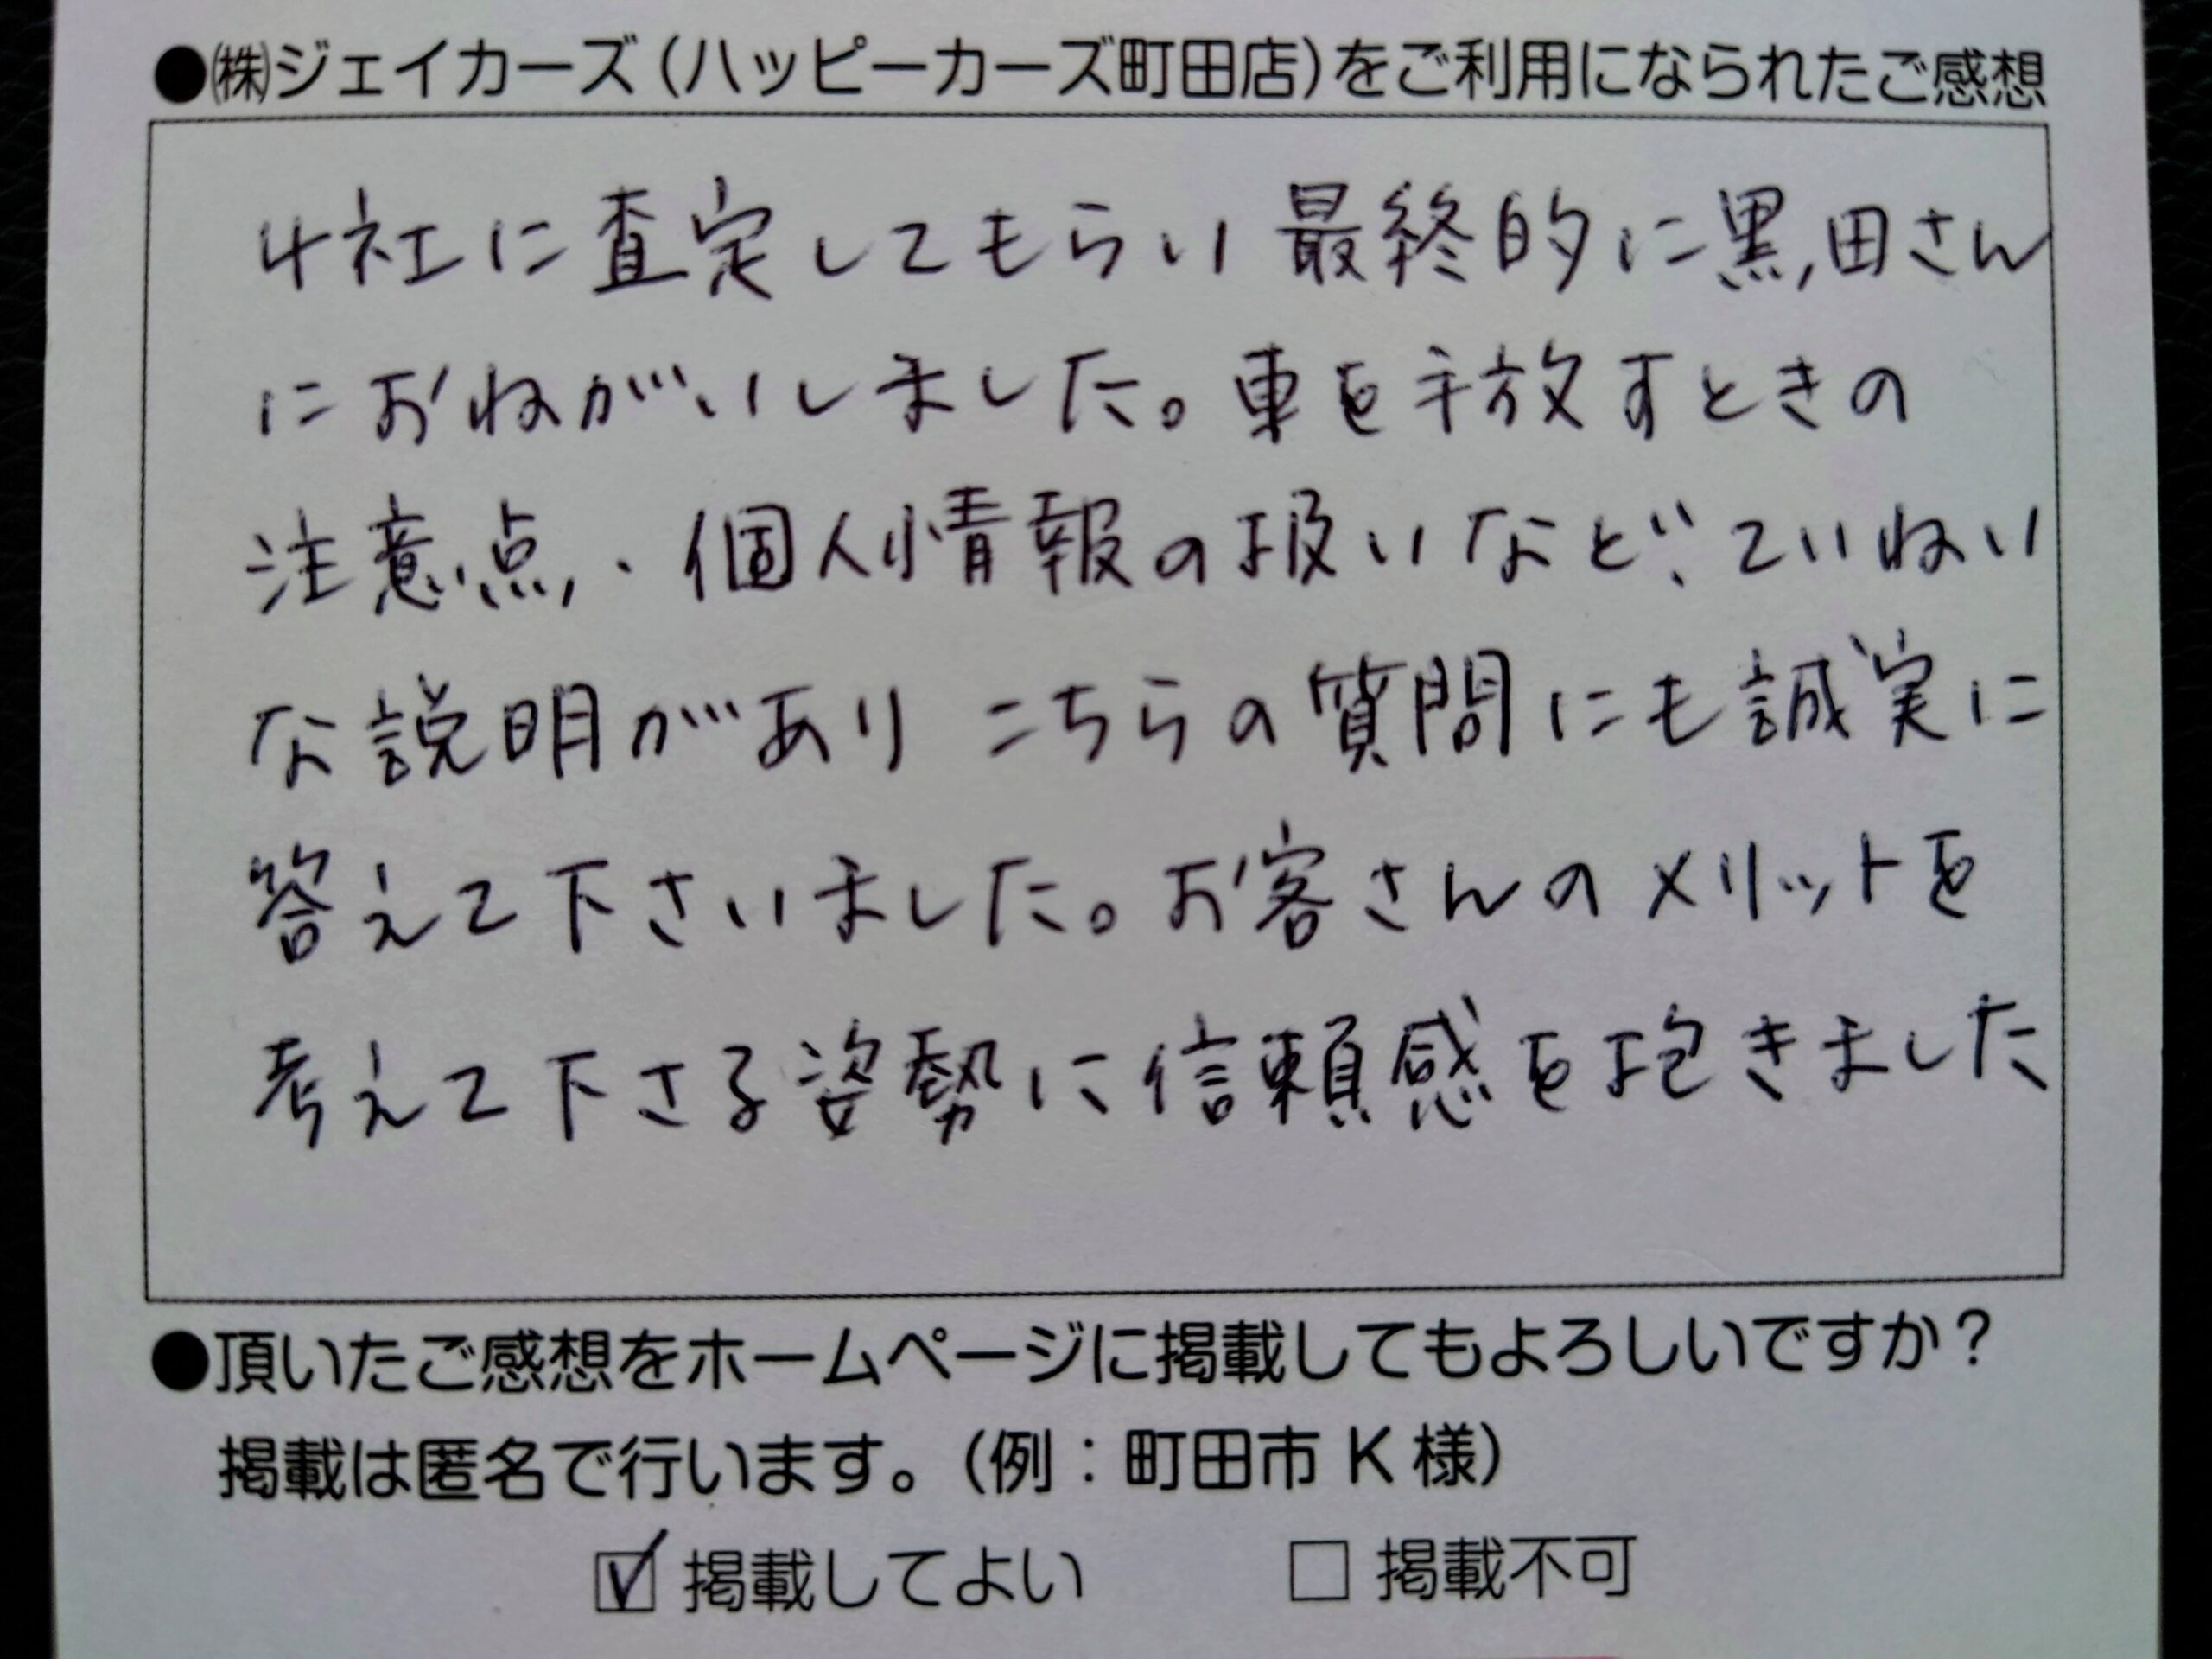 ●㈱ジェイカーズ（ハッピーカーズ町田店）をご利用になられたご感想
4社に査定してもらい最終的に黒田さん
におねがいしました。車を手放すときの
注意点・個人情報の扱いなど、ていねい
な説明があり こちらの質問にも誠実に
答えて下さいました。お客さんのメリットを
考えて下さる姿勢に信頼感を抱きました
●頂いたご感想をホームページに掲載してもよろしいですか？
掲載は匿名で行います。（例：町田市 K 様）
☑ 掲載してよい　□ 掲載不可